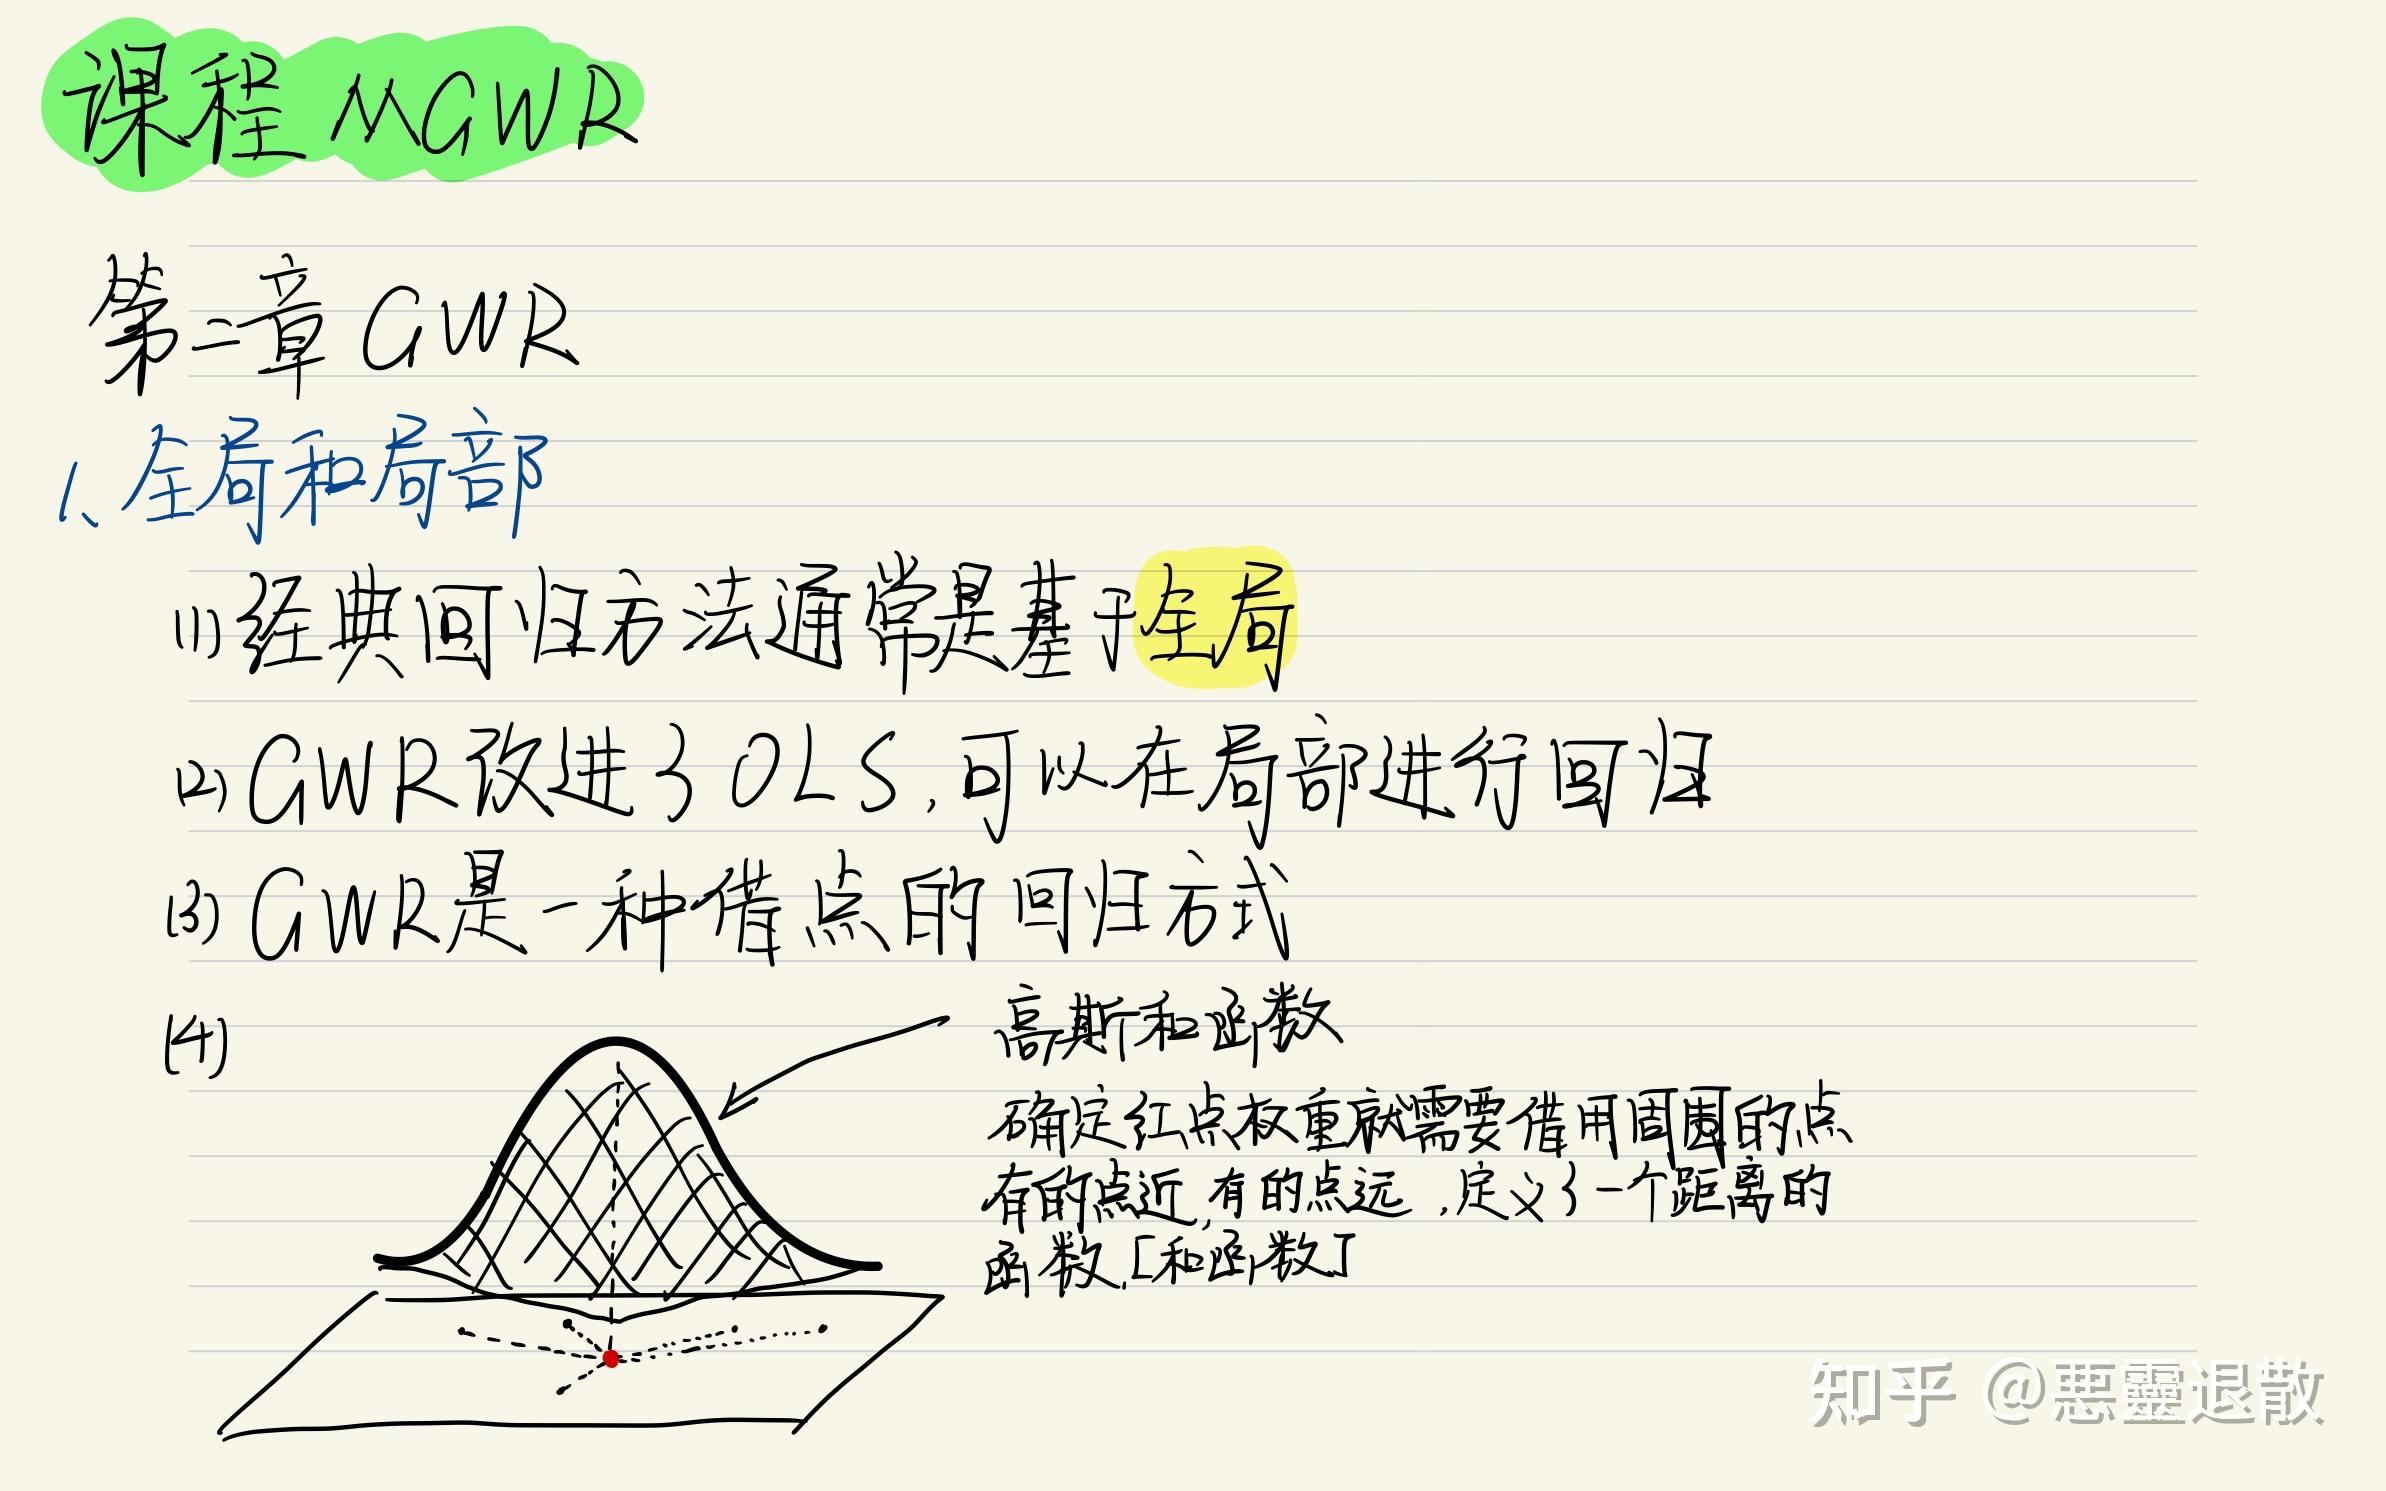 课程 MGWR
第二章 GWR
1、全局和局部
(1) 经典回归方法通常是基于全局
(2) GWR改进了OLS,可以在局部进行回归
(3) GWR是一种借点的回归方式
(4)
高斯和函数
确定红点权重就需要借用周围的点
有的点近,有的点远,定义了一个距离的
函数,[和函数]
知乎 @悪靈退散